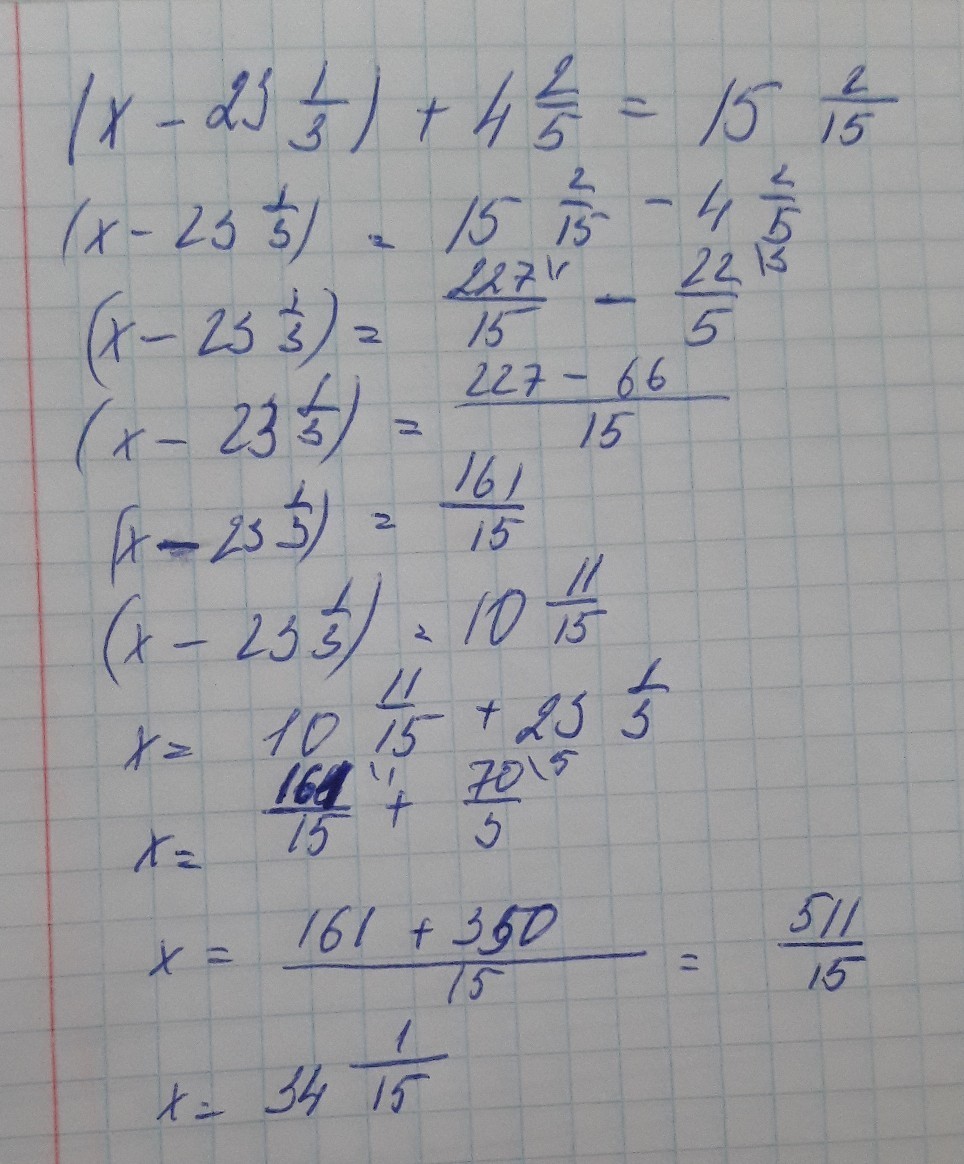 (x - 23 1/3) + 4 2/5 = 15 2/15
(x - 23 1/3) = 15 2/15 - 4 2/5
(x - 23 1/3) = 227\1/15 - 22\3/5
(x - 23 1/3) = (227 - 66)/15
(x - 23 1/3) = 161/15
(x - 23 1/3) = 10 11/15
x = 10 11/15 + 23 1/3
x = 161\1/15 + 70\5/3
x = (161 + 350)/15 = 511/15
x = 34 1/15